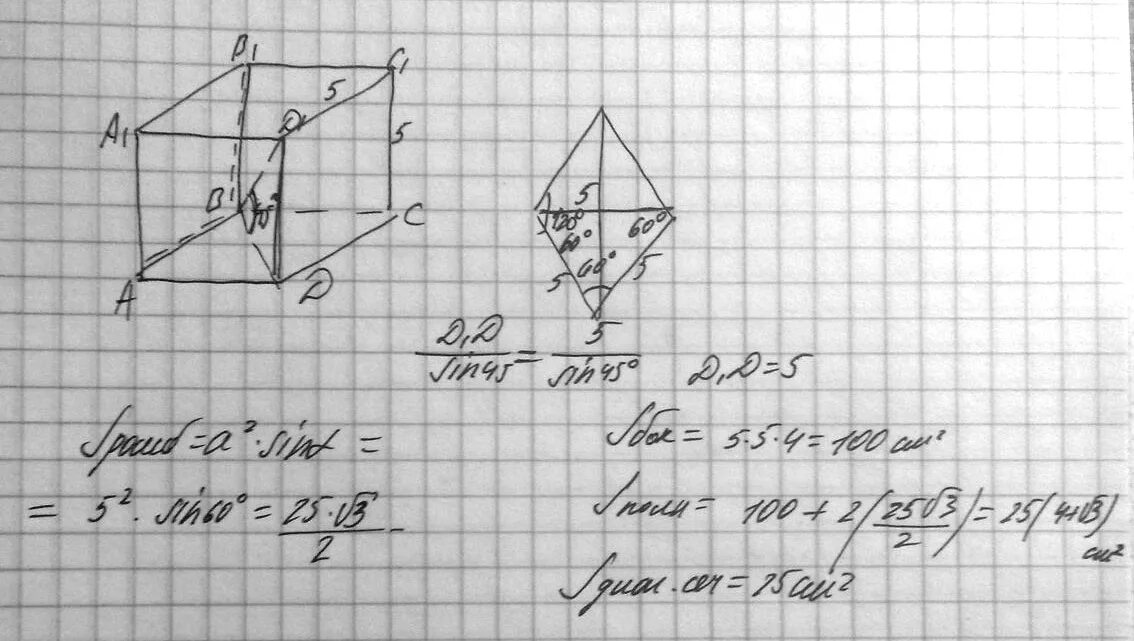 B₁ C₁
5
A₁ D₁ 5
B C
5
120° 60°
60°
60°
5 5
A D
D₁D / sin45 = 5 / sin45° D₁D = 5
Sромб = a² · sinα =
= 5² · sin60° = 25·√3 / 2
Sбок = 5·5·4 = 100 см²
Sполн = 100 + 2(25√3 / 2) = 25(4+√3) см²
Sдиаг.сеч = 25 см²